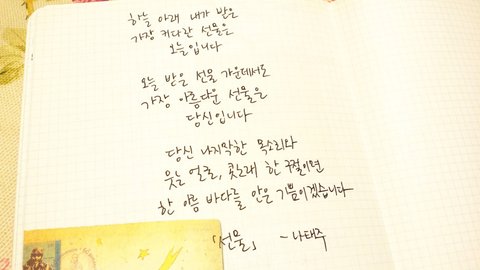 하늘 아래 내가 받은
가장 커다란 선물은
오늘입니다
오늘 받은 선물 가운데서도
가장 아름다운 선물은
당신입니다
당신 나지막한 목소리와
웃는 얼굴, 콧노래 한 구절이면
한 아름 바다를 안은 기쁨이겠습니다
「선물」 -나태주